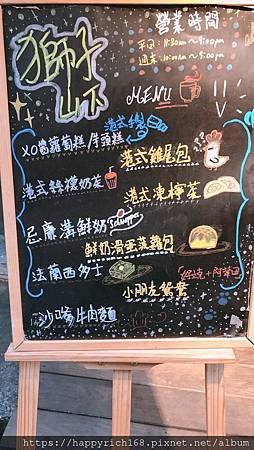 獅子山下
營業時間
平日：11:30am～9:00pm
週末：10:00am～9:00pm
MENU
港式手繪
XO醬蘿蔔糕/芋頭糕
港式雞尾包
港式絲襪奶茶
港式凍檸茶
忌廉溝鮮奶
Schweppes
鮮奶滑蛋菠蘿包
法蘭西多士
小朋友鴛鴦
(好立克+阿華田)
沙嗲牛肉麵
https://happyrich168.pixnet.net/album